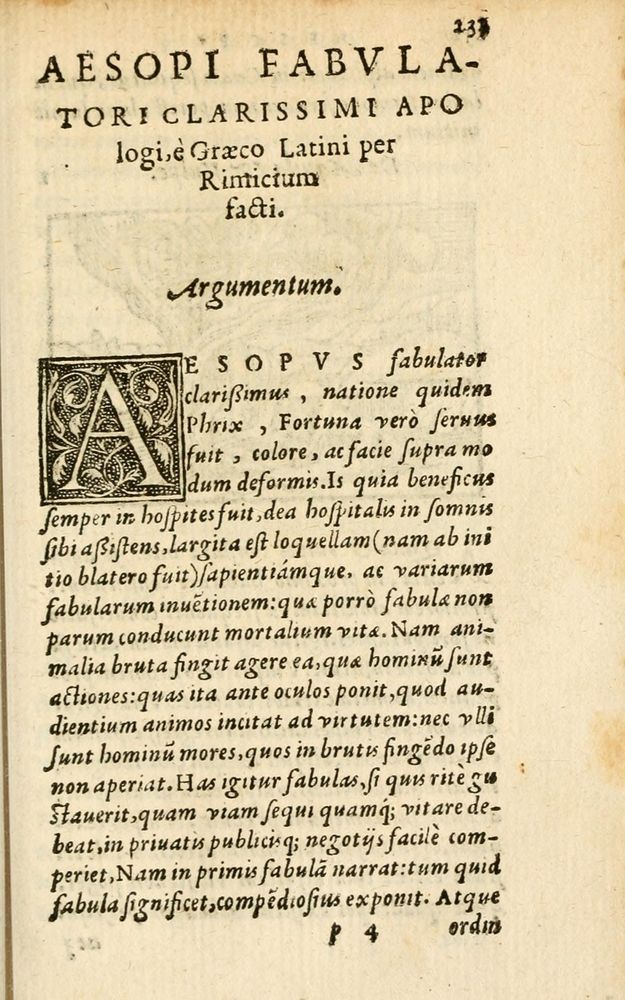 AESOPI FABVLA-
TORI CLARISSIMI APO
logi, è Græco Latini per
Rimicium
facti.
Argumentum.
AESOPVS fabulator
clarißimus, natione quidem
Phrix, Fortuna verò seruus
fuit, colore, ac facie supra mo
dum deformis. Is quia beneficus
semper in hospites fuit, dea hospitalis in somnis
sibi aßistens, largita est loquellam (nam ab ini
tio blatero fuit) sapientiámque, ac variarum
fabularum inuētionem: quæ porrò fabulæ non
parum conducunt mortalium vitæ. Nam ani-
malia bruta fingit agere ea, quæ hominū sunt
actiones: quas ita ante oculos ponit, quod au-
dientium animos incitat ad virtutem: nec vlli
sunt hominū mores, quos in brutis fingēdo ipse
non aperiat. Has igitur fabulas, si quis ritè gu
stauerit, quam viam sequi quamq́; vitare de-
beat, in priuatis publicisq; negotijs facilè com-
periet, Nam in primis fabulā narrat: tum quid
fabula significet, compēdiosius exponit. Atque
P 4 ordin